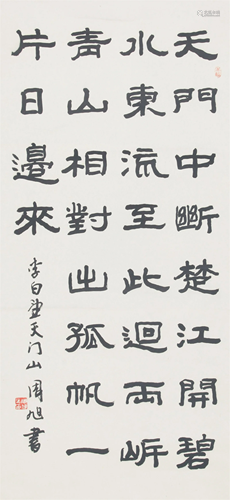 天門中斷楚江開碧
水東流至此迴兩岸
青山相對出孤帆一
片日邊來
李白望天门山 周旭書